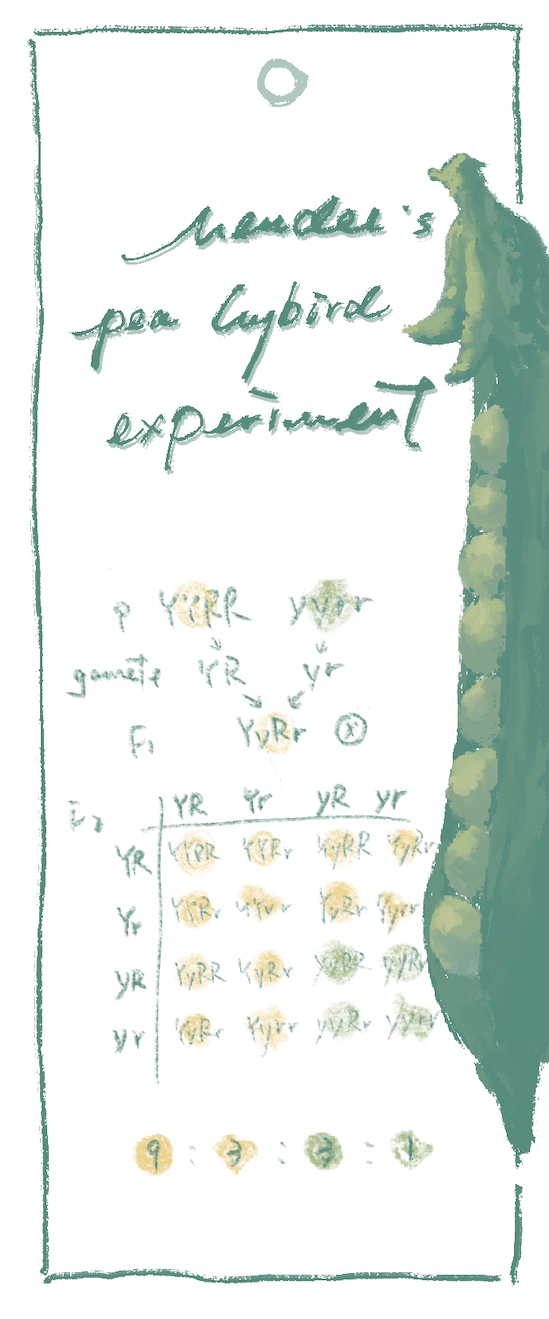 Mendel's
pea hybird
experiment
P YYRR yyrr
gamete YR yr
F1 YyRr ⓧ
F2 YR Yr yR yr
YR YYRR YYRr YyRR YyRr
Yr YYRr YYrr YyRr Yyrr
yR YyRR YyRr yyRR yyRr
yr YyRr Yyrr yyRr yyrr
9 : 3 : 3 : 1